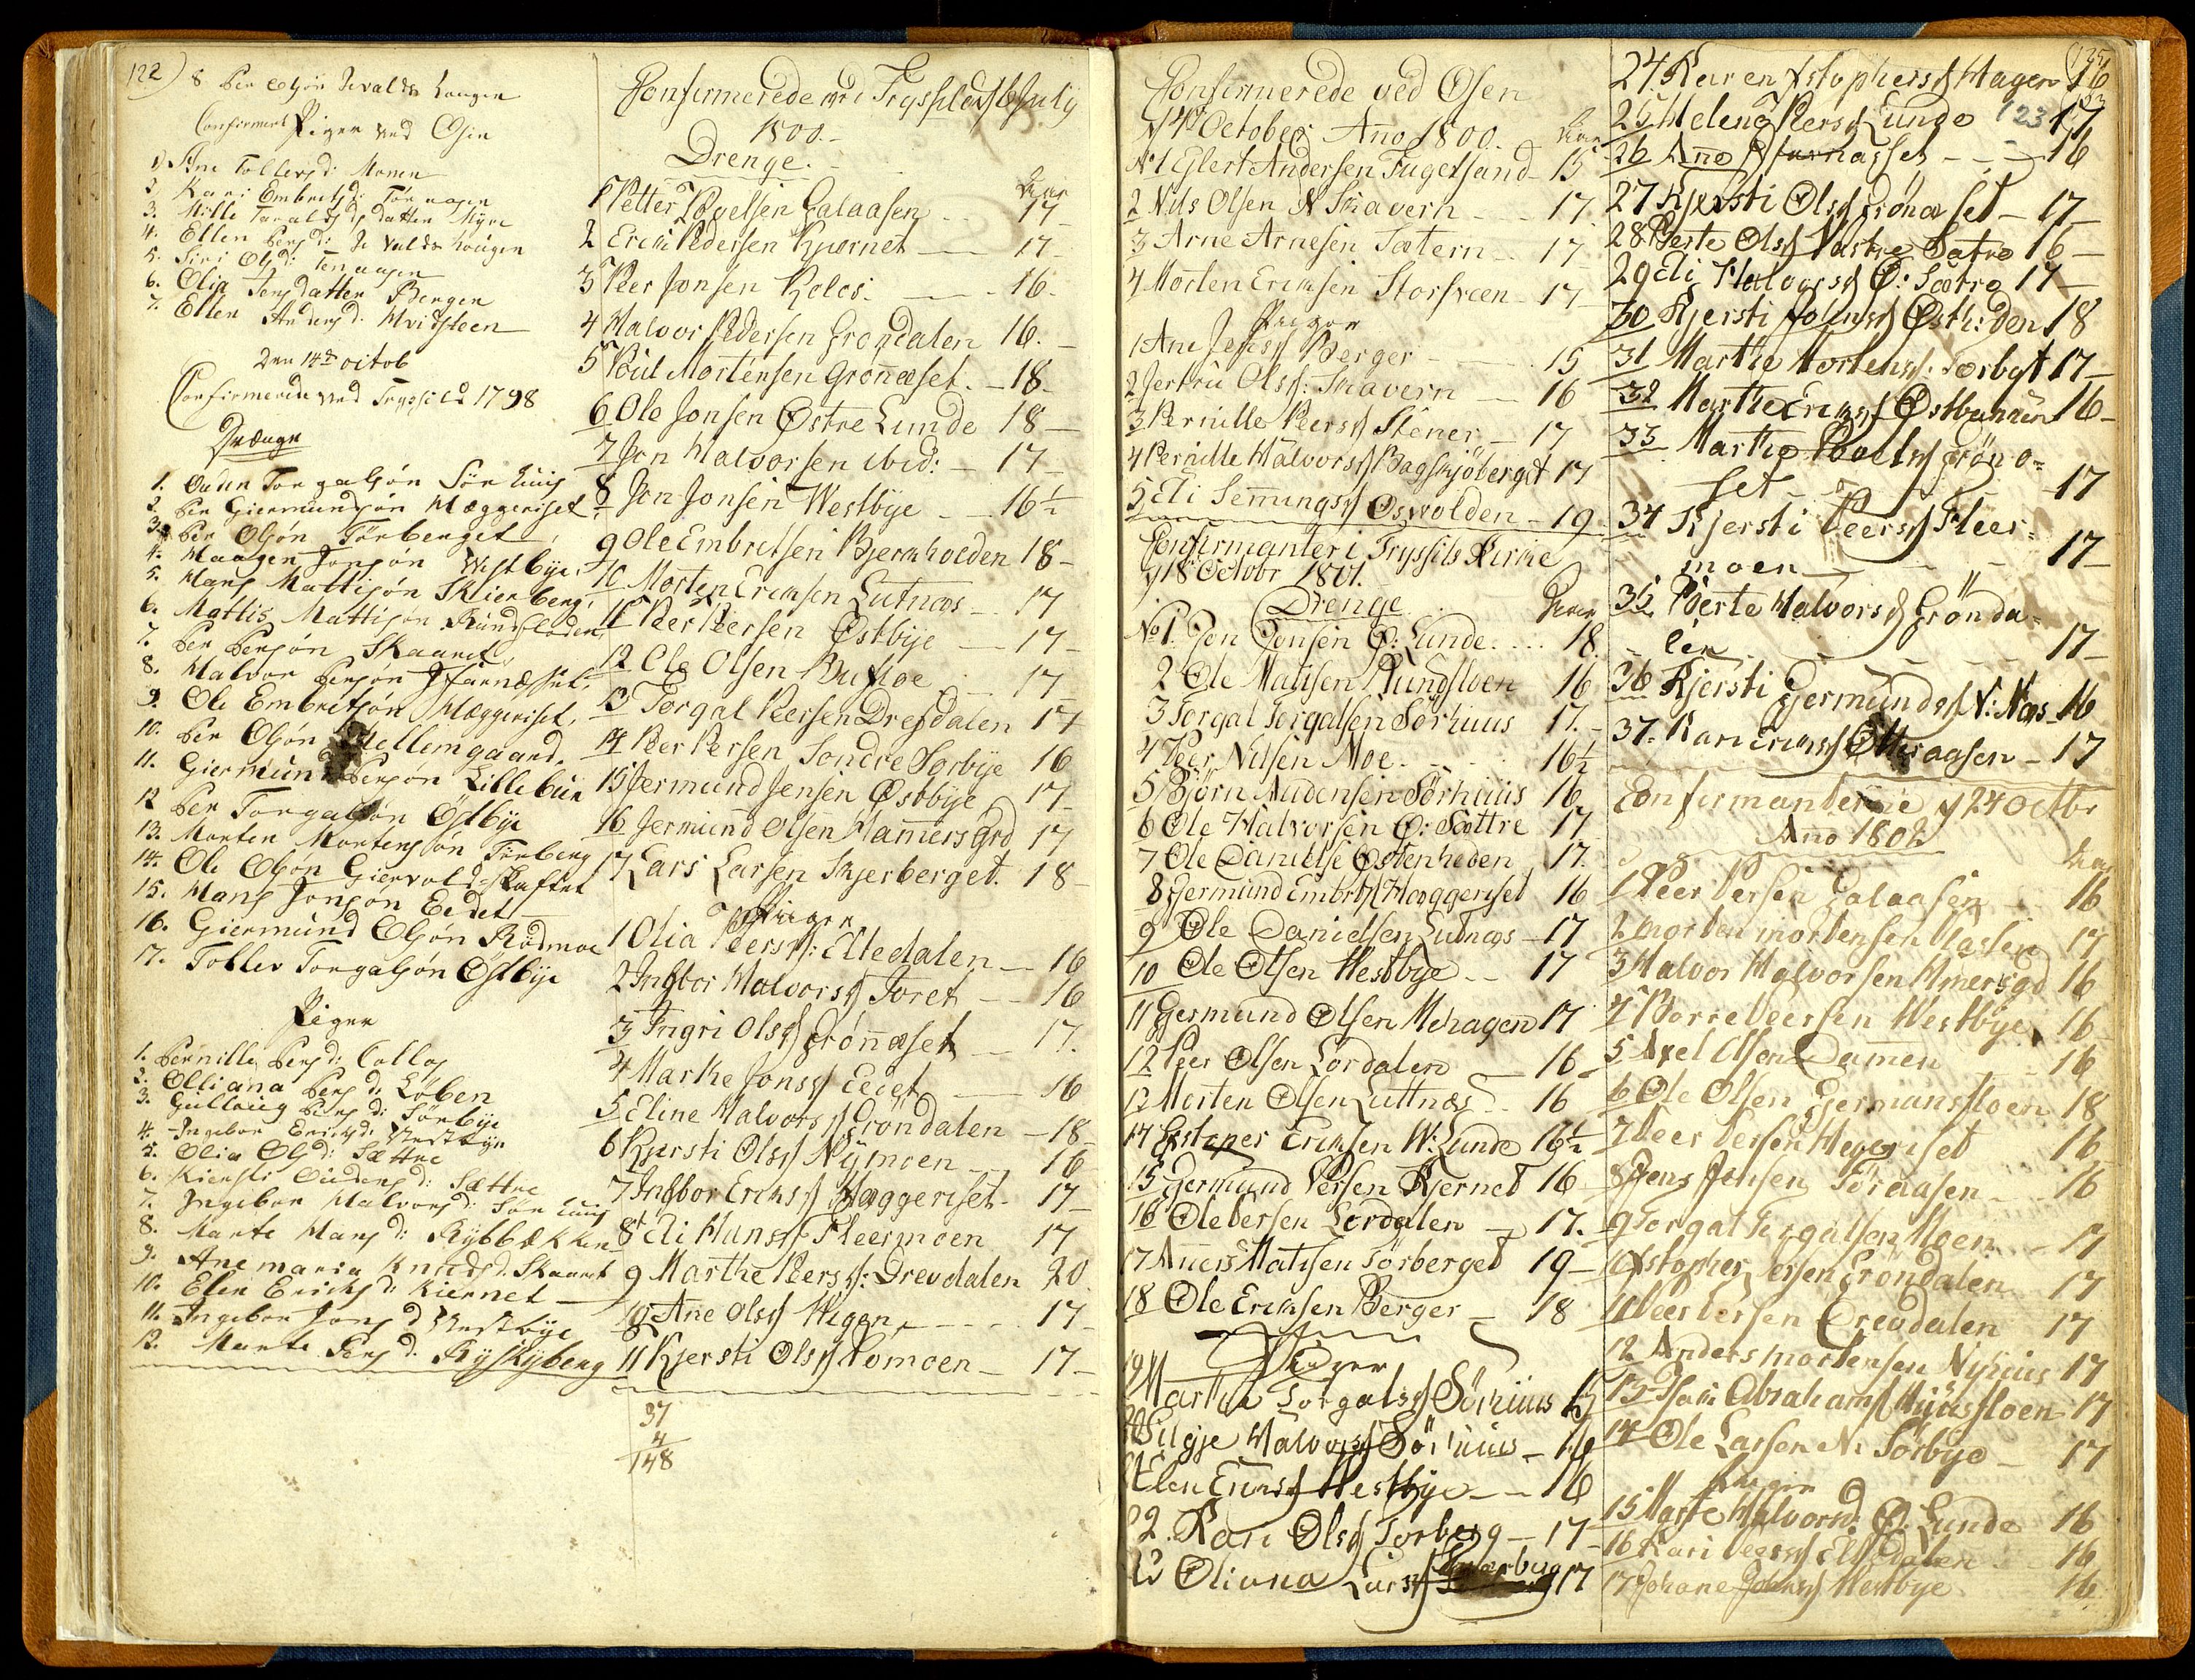 122)
8 Per Olsön Ievaldshougen
Confirmert Piger ved Osen
1. Ane Tollevsd: Moren
2. Kari Embretsd:
3. Mille Taraldsdatter Myre
4. Ellen Persd: Ievaldshougen
5. Siri Olsd:
6. Olia Jensdatter Berger
7. Ellen Andersd: Hvidsteen
Den 14de octob
Confirmerede ved Tryssild 1798
Drænge
1. Ouden Torgalsön Sörhuus
2. Per Giermundsön Hæggeriset
3. Per Olsön Törberget
4. Haagen Jonsön Westbye
5. Hans Mattisön Skierberg
6. Mattis Mattisön Rundfloden
7. Per Persön Skaaret
8. Halvor Persön
9. Ole Embretsön Hæggeriset
10. Per Olsön Mellemgaard
11. Giermund Persön Lillebui
12 Per Torgalsön Östbye
13. Morten Mortensön Törberg
14. Ole Olsön Giervoldskaftet
15. Hans Jonsön Eedet
16. Giermund Olsön Rödmoe
17. Tollev Torgalsön Östbye
Piger
1. Pernille Persd: Collos
2. Olliana Persd: Löben
3. Gulloug Persd: Sörbye
4. Ingebor Ericksd: Westbye
5. Olia Olsd: Sættre
6. Kiersti Oudensd: Sættre
7. Ingebor Halvorsd: Sörhuus
8. Marte Hansd: Rybbækken
9. Anemaria Knudsd: Skaaret
10. Elen Ericksd: Kiernet
11. Ingebor Jonsd Westbye
12. Marte Persd: Ryskyberg
Confirmerede ved Trysild d 6 July
1800.
Drenge.
Aar
1 Petter Povelsen Galaasen 17
2 Erik Pedersen Kjærnet 17
3 Peer Jonsen Kolos. 16.
4 Halvor Pedersen Grøndalen 16.
5 Poul Mortensen Grønæset. 18
6 Ole Jonsen Østre Lunde 18
7 Jon Halvorsen ibid: 17
8 Jon Jonsen Westbye 16½
9 Ole Embretsen Bjerkholden 18
10 Morten Eriksen Lutnæs 17
11 Peer Persen Østbye 17
12 Ole Olsen Bufloe 17
13 Torgal Peersen Drefdalen 17
14 Peer Persen Sondre Sorbye 16
15 Jermund Jensen Østbye 17
16 Jermund Olsen Hamersgrd 17
17 Lars Larsen Skjerberget. 18
Piger
1 Olia Peersd: Eltedalen 16
2 Ingbor Halvorsd Joret 16
3 Ingri Olsd Grønæset 17.
4 Marke Jonsd Eedet 16
5 Eline Halvorsd Grøndalen 18
6 Kjersti Olsd Nymoen 16
7 Ingbor Eriksd Hæggeriset 17
8 Eli Hansd Fleermoen 17
9 Marthe Peersd: Drevdalen 20
10 Ane Olsd Wigen 17
11 Kjersti Olsd Romoen 17
37
4
148
Confirmerede ved Osen
d 4de October Ano 1800.
Aar
No 1 Elert Andersen Fugelsand 15
2 Nils Olsen N Skavern 17
3 Arne Arnesen Sætern 17
4 Morten Eriksen Storsveen 17
Piiger
1 Ane Jensd Berger 15
2 Jertru Olsd: Skavern 16
3 Pernille Peersd Stener 17
4 Pernille Halvorsd Bagskjöberget 17
5 Eli Semmingsd Oswolden 19
Confirmanter i Trysils Kirke
d 18 Octobr 1801.
Drenge
Aar
No 1. Jon Jonsen Ø. Lunde 18.
2 Ole Matisen Rundfloen 16
3 Torgal Torgalsen Sörhuus 17.
4 Peer Nilsen Moe 16½
5 Björn Audensen Sörhuus 16
6 Ole Halvorsen Ø: Sættre 17
7 Ole Danielse Østenheden 17.
8 Germund Embrts Hæggeriset 16
9 Ole Danielsen Lutnæs 17
10 Ole Olsen Westbye 17
11 Germund Olsen Mehagen 17
12 Peer Olsen Lordalen 16
13 Morten Olsen Luttnæs 16
14 Erstoper Eriksen W: Lunde 16½
15 Germund Persen Kjernet 16
16 Ole Persen Lordalen 17.
17 Aners Matisen Törberget 19
18 Ole Eriksen Berger 18
Piiger
19 Marthe Torgalsd Sörhuus
20 Silgje Halvorsd Sörhuus 16
21 Elen Eriksd Westbye 16
22. Kari Olsd Torberg 17
23 Oliana Larsd Skjærberg 17
24. Karen Xstophersd Hagen 16
123
25 Helena Peersd Lunde 17
26 Ane 16
27 Kjersti Olsd Grönæset 17
28 Berte Olsd Vastre Sætre 16
29 Eli Halvorsd Ø: Sætre 17
30 Kjersti Johnsd Østh:den 18
31 Marthe Mortensd: Torbgt 17
32 Marthe Eriksd Østbunden 16
33 Marthe Povelsd Gröno=
set 17
34 Kjersti Peersd Fleer=
moen 17
35 Berte Halvorsd Grönda=
len 17
36 Kjersti Germundsd N: Næs 16
37. Kari Eriksd Otteraasen 17
Confirmanterne d 24 Octbr
Ano 1802
Aar
1 Peer Persen Galaasen 16
2 Morten Mortensen 17
3 Halvor Halvorsen Hmersgd 16
4 Borre Peersen Westbye 16
5 Axel Olsen Damen 16
6 Ole Olsen Germunsfloen 18
7 Peer Persen Hegeriset 16
8 Jens Jensen Töraasen 16
9 Torgal Torgalsen Moen 17
10 Xstopher Persen Gröndalen 17
11 Peer Persen Drevdalen 17
12 Anders Mortensen Nyhuus 17
13 Isac Abrahams Nyusfloen 17
14 Ole Larsen N: Sörbye 17
Piiger
15 Marte Halvorsd: Ø: Lunde 16
16 Kari Peersd Eltdalen 16
17 Johane Johnsd Westbye 16